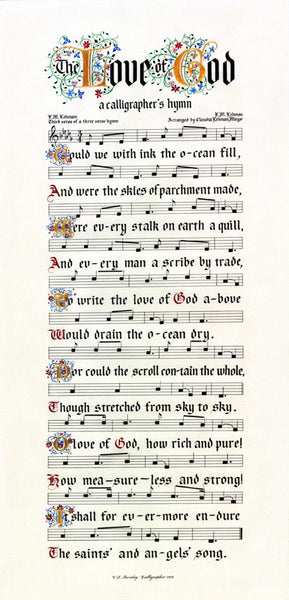 The Love of God
a calligrapher's hymn
F.M. Lehman
F.M. Lehman
Third verse of a three verse hymn
Arranged by Claudia Lehman Mays
Could we with ink the o-cean fill,
And were the skies of parchment made,
Were ev-ery stalk on earth a quill,
And ev-ery man a scribe by trade,
To write the love of God a-bove
Would drain the o-cean dry.
Nor could the scroll con-tain the whole,
Though stretched from sky to sky.
O love of God, how rich and pure!
How mea-sure-less and strong!
It shall for ev-er-more en-dure
The saints' and an-gels' song.